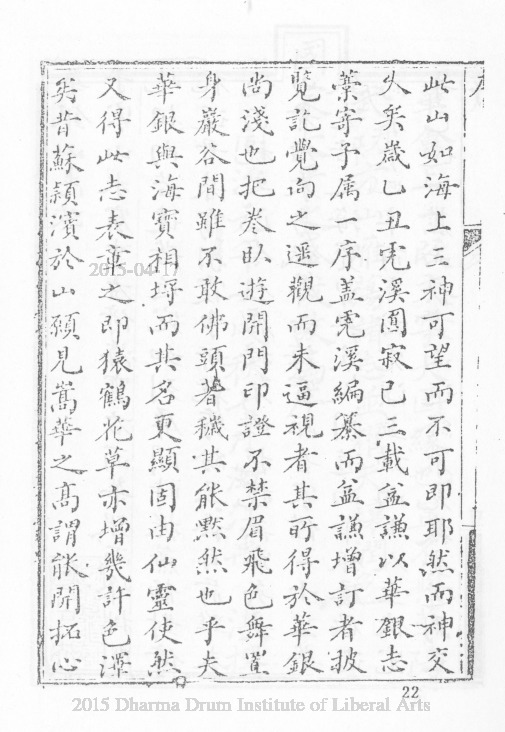 此山如海上三神可望而不可即耶然而神交
久矣歲乙丑霓溪圓寂已三載益謙以華銀志
藁寄予属一序盖霓溪編纂而益謙增訂者披
覽訖覺向之遥觀而未逼視者其所得於華銀
尚淺也把卷臥遊開門印證不禁眉飛色舞置
身巖谷間雖不敢佛頭著穢其能默然也乎夫
華銀與海寶相埒而其名更顯固由仙靈使然
又得此志表章之即猿鶴花草亦增幾許色澤
矣昔蘇頴濱於山頋見嵩華之高謂能開拓心
2015-04-17
22
2015 Dharma Drum Institute of Liberal Arts